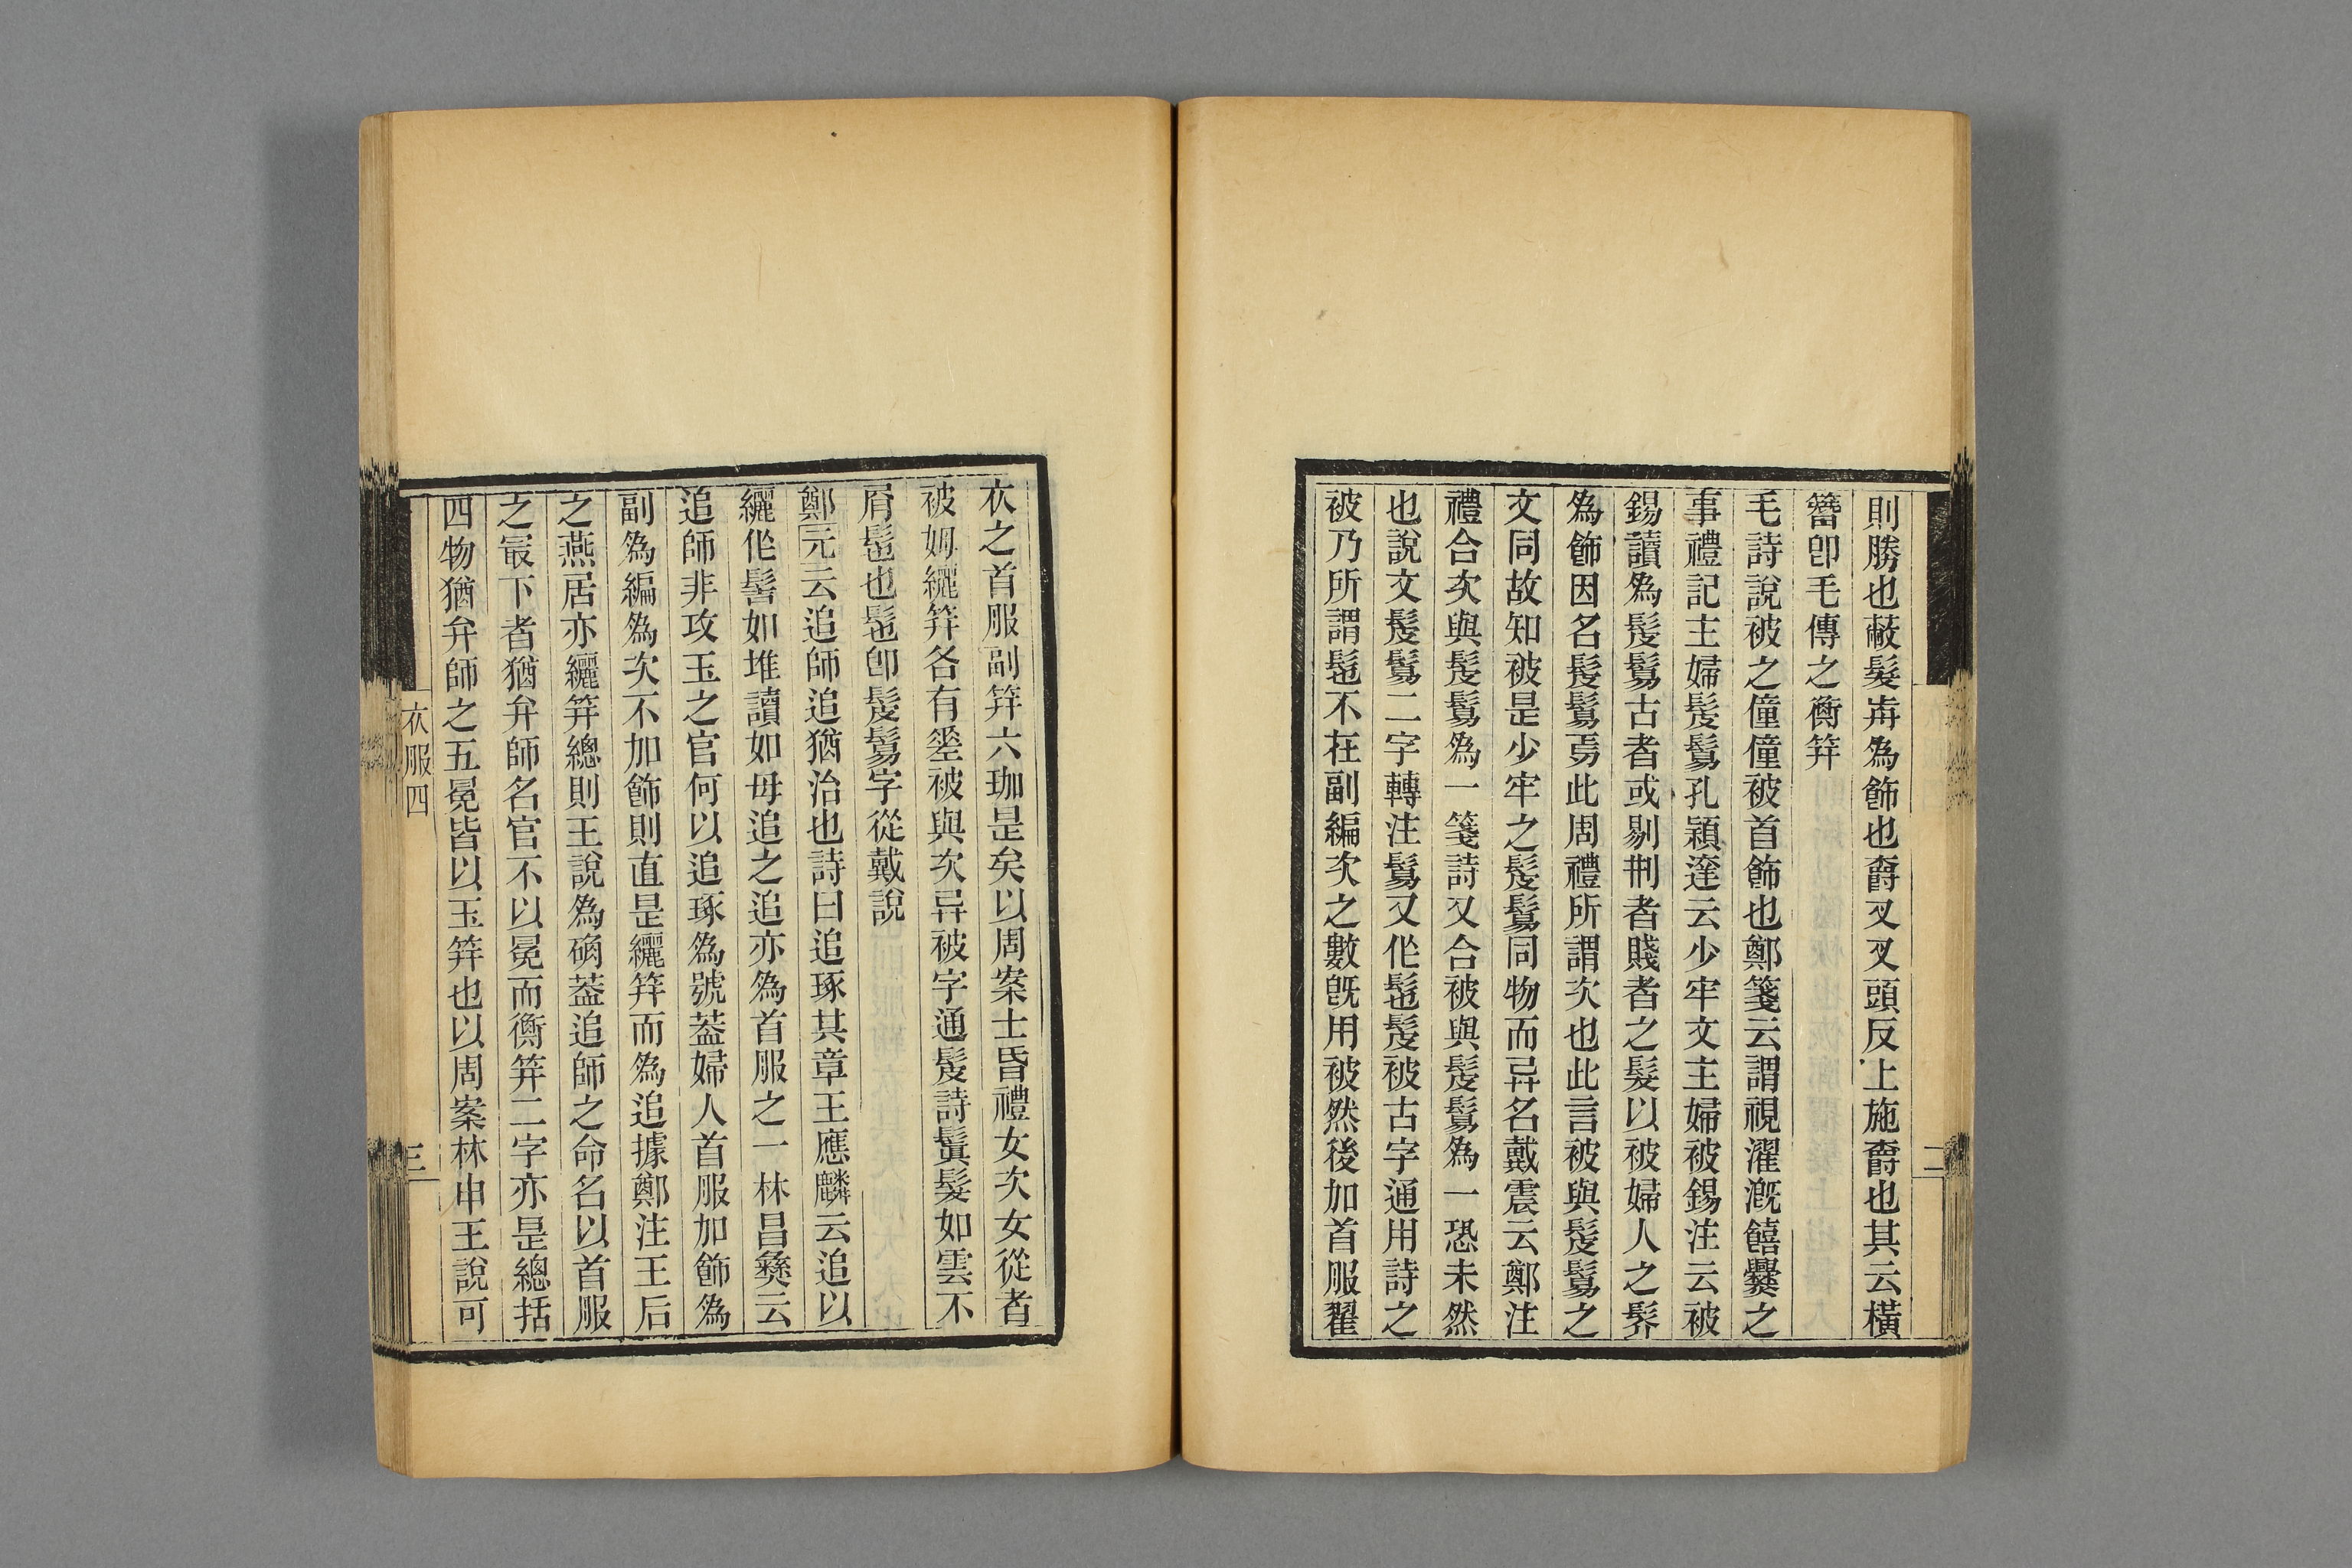 則勝也蔽髮歬為飾也爵叉叉頭反上施爵也其云橫
簪卽毛傳之衡笄
毛詩說被之僮僮被首飾也鄭箋云謂視濯溉饎爨之
事禮記主婦髲鬄孔穎達云少牢文主婦被錫注云被
錫讀為髲鬄古者或剔刑者賤者之髮以被婦人之髤
為飾因名髲鬄焉此周禮所謂次也此言被與髲鬄之
文同故知被是少牢之髲鬄同物而异名戴震云鄭注
禮合次與髲鬄為一箋詩又合被與髲鬄為一恐未然
也說文髲鬄二字轉注鬄又作髢髲被古字通用詩之
被乃所謂髢不在副編次之數旣用被然後加首服翟
二
衣之首服副笄六珈是矣以周案士昏禮女次女從者
被姆纚笄各有等被與次异被字通髲詩鬒髮如雲不
屑髢也髢卽髲鬄字從戴說
鄭元云追師追猶治也詩曰追琢其章王應麟云追以
纚作髻如堆讀如毋追之追亦為首服之一林昌彝云
追師非攻玉之官何以追琢為號葢婦人首服加飾為
副為編為次不加飾則直是纚笄而為追據鄭注王后
之燕居亦纚笄總則王說為确葢追師之命名以首服
之冣下者猶弁師名官不以冕而衡笄二字亦是總括
四物猶弁師之五冕皆以玉笄也以周案林申王說可
衣服四
三